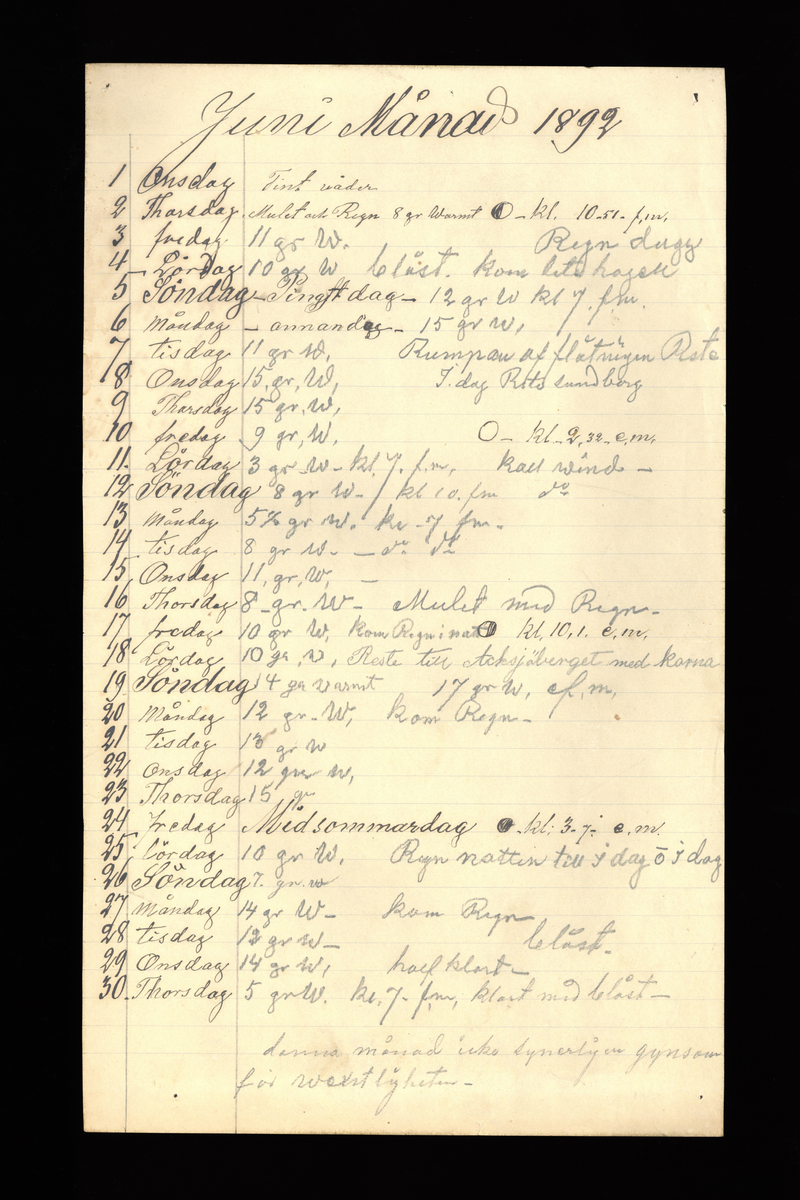 Juni Månad 1892
1 Onsdag Fint väder
2 Thorsdag. Mulet och Regn 8 gr Warmt O - kl. 10-51- f,m,
3 fredag 11 gr W. Regn dugg
4 Lördag 10 gr W blåst. kom lite hagell
5 Söndag - Pingstdag - 12 gr W kl 7. f.m.
6 Måndag - annandag - 15 gr W,
7 tisdag 11 gr W, af flåtningen Reste
8 Onsdag 15, gr, W, I. dag Sundborg
9 Thorsdag 15 gr, W,
10 fredag 9 gr, W, O - kl - 2,32 - e,m,
11. Lördag 3 gr W - kl. 7. f,m, kall wind -
12 Söndag 8 gr W - kl 10. fm do
13 Måndag 5½ gr W. kl - 7 fm.
14 tisdag 8 gr W - - do do
15, Onsdag 11, gr, W, -
16 Thorsdag 8 - gr. W - Mulet med Regn -
17 fredag 10 gr W, kom Regn i nat O kl, 10, 1. e, m,
18 Lördag 10 gr, W, Reste till Acksjöberget med korna
19 Söndag 14 gr warmt 17 gr W, ef, m,
20 Måndag 12 gr - W, kom Regn -
21 tisdag 13 gr W
22 Onsdag 12 W,
23 Thorsdag 15 gr
24 Fredag Midsommardag O - kl: 3 - 7 - e, m.
25, lördag 10 gr W. Regn natten till i dag o i dag
26 Söndag 7. gr. w
27 Måndag 14 gr W - kom Regn
28 tisdag 12 gr W - blåst -
29 Onsdag 14 gr W, half klart -
30. Thorsdag 5 gr W. kl, 7 - f,m, klart med blåst -
denna månad icke synerligen gynsam
för wextligheten -